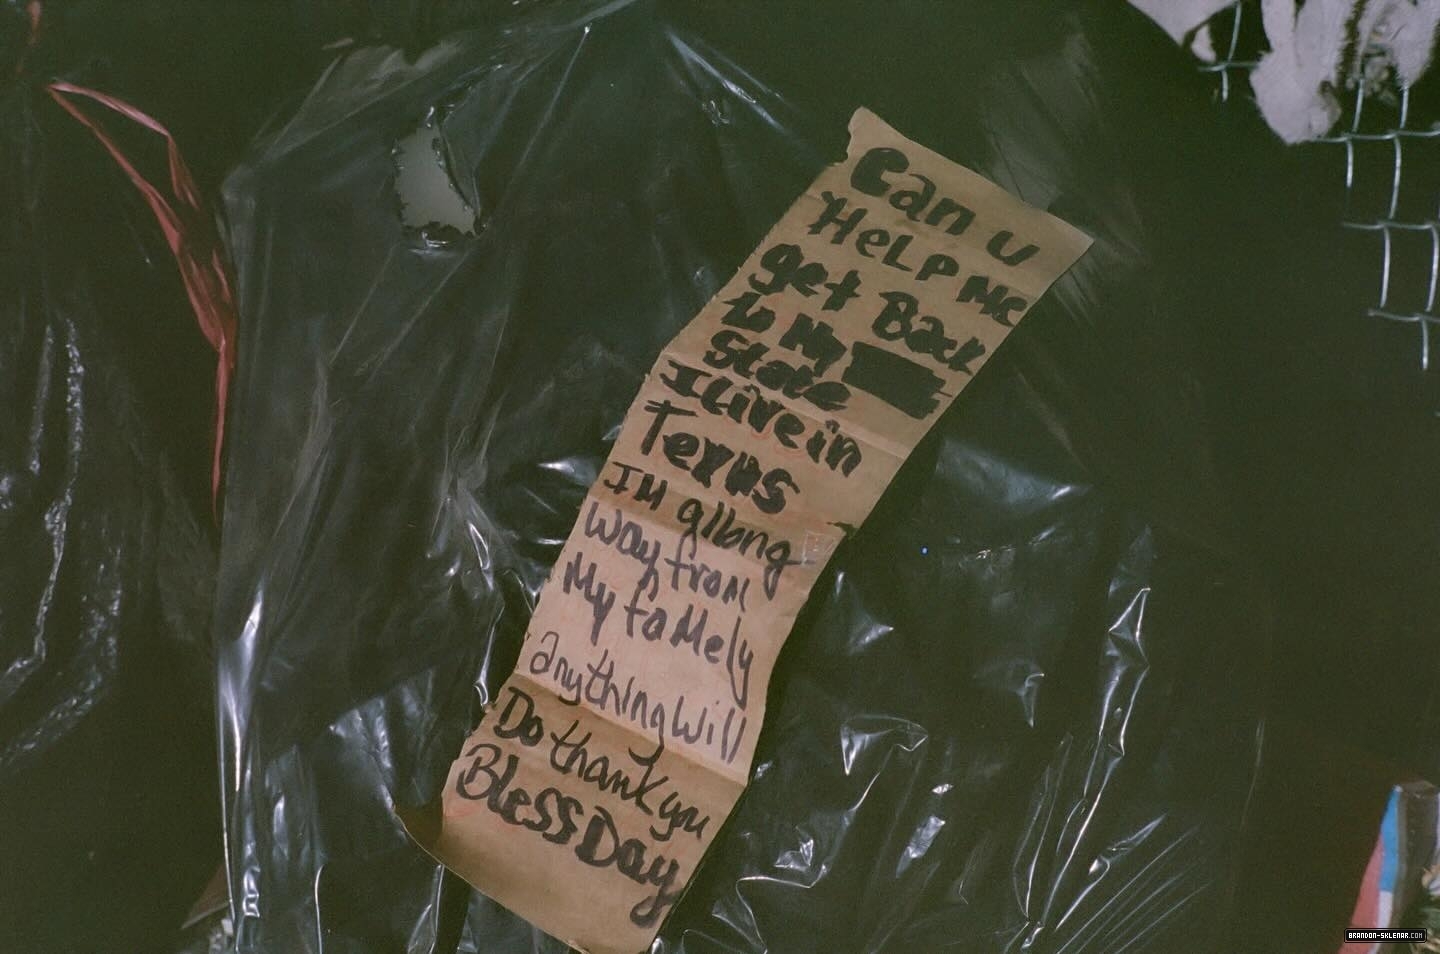 Can U
HeLP Me
get Back
to My
State
I Live in
Texas
IM alongg
way from
My faMely
anything will
Do thank you
BLess Day
BRANDON-SKLENAR.COM